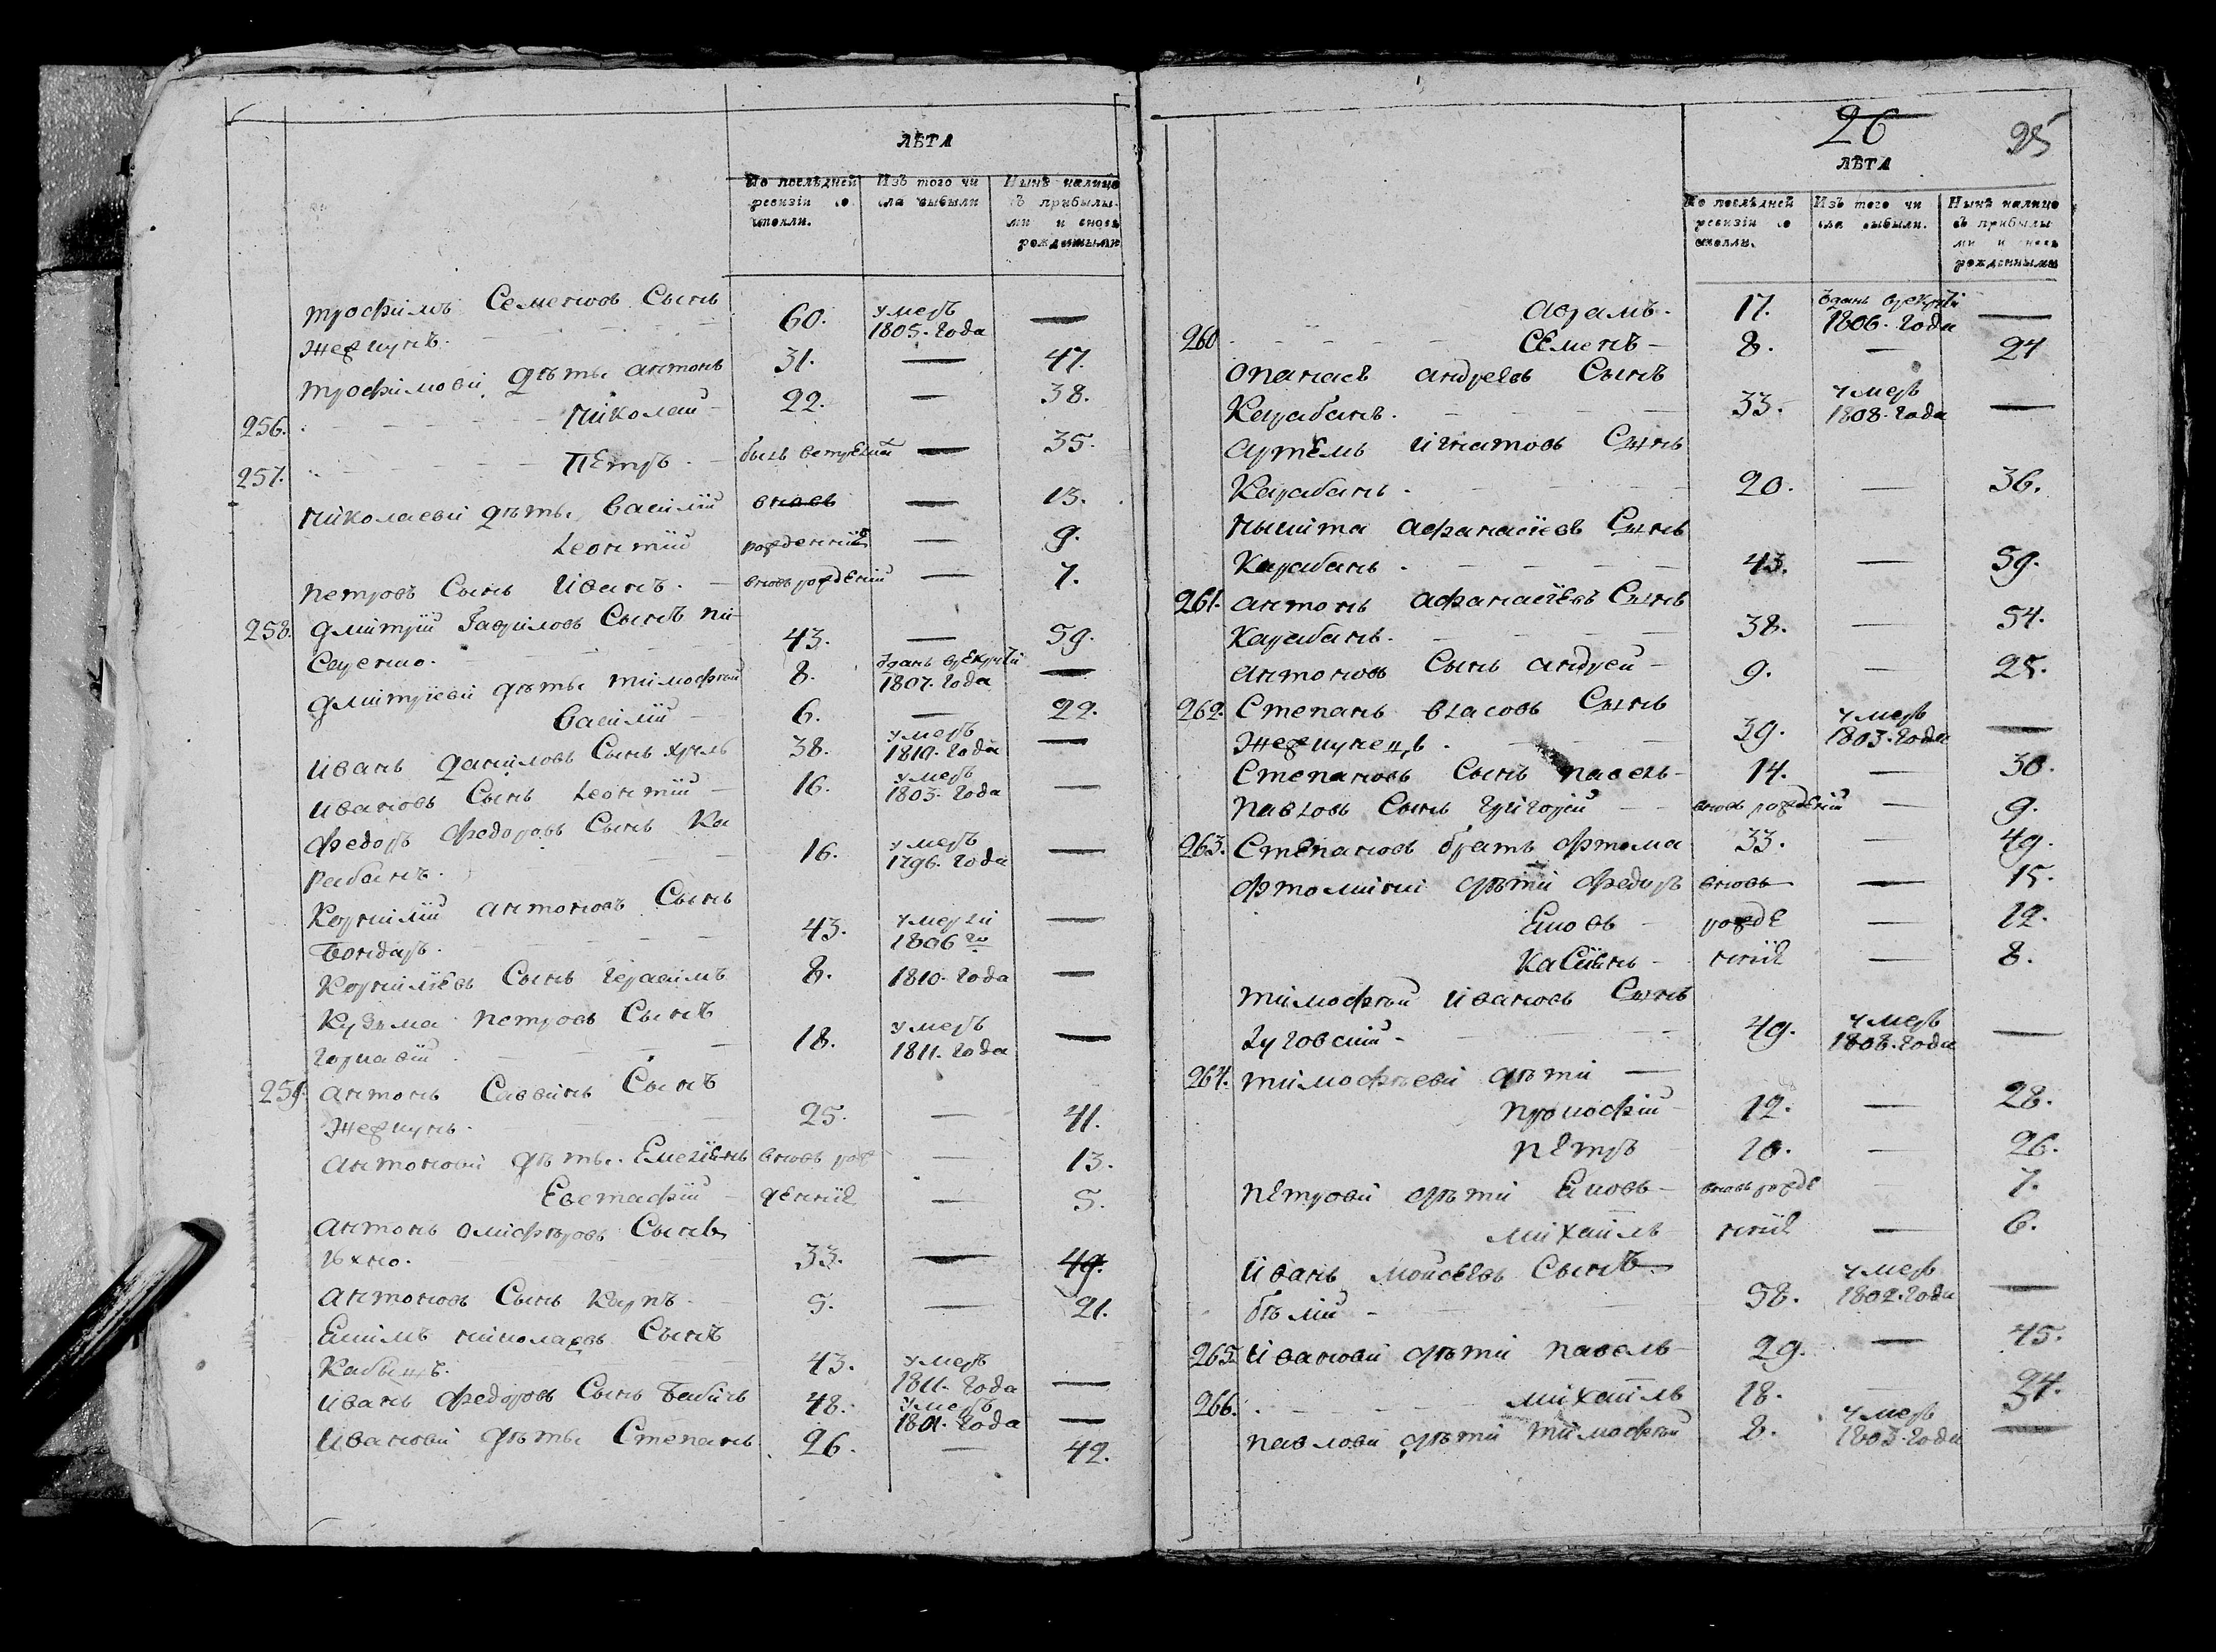 ЛѢТА
По послѣдней ревизіи состояли.
Изъ того числа выбыли
Нынѣ налицо съ прибылыми и вновь рожденными
Трофимъ Семеновъ Сынъ
Жефкунъ. 60. умеръ 1805. года —
Трофимовы дѣты Антонъ 31. — 47.
256. Николай 22. — 38.
257. Петръ быль — 35.
Николаевы дѣты Василій вновь — 13.
Леонтій рожденніе — 9.
Петровъ Сынъ Иванъ. вновь рожденій — 7.
258. Дмитрій Гавриловъ Сынъ Пи
Саренко. 43. — 59.
Дмитріеви дѣты Тимофѣй 8. зданъ врекруты 1807. года —
Василій 6. — 22.
Иванъ Даниловъ Сынъ 38. умеръ 1810. года —
Ивановъ Сынъ Леонтій 16. умеръ 1803. года —
Федоръ Федоровъ Сынъ Ка
рабанъ. 16. умеръ 1796. года —
Корнилій Антоновъ Сынъ
Бондарь. 43. умерли 1806 го —
Корниліевъ Сынъ Герасимъ 8. 1810. года —
Кузьма Петровъ Сынъ
Горкавій 18. умеръ 1811. года —
259. Антонъ Саввинъ Сынъ
Жефкунъ. 25. — 41.
Антонови дѣты. Емелїянъ вновь рож — 13.
Евстафій денніе — 5.
Антонъ Онифѣровъ Сынъ
Юхно. 33. — 49.
Антоновъ Сынъ Карпъ 5. — 21.
Екимъ Николаевъ Сынъ
Кабыцъ. 43. умеръ 1811. года —
Иванъ Федоровъ Сынъ Бабичъ 48. умеръ 1801. года —
Иванови дѣты Степанъ 26. — 42.
26 25
ЛѢТА
По послѣдней ревизіи состояли.
Изъ того числа выбыли.
Нынѣ налицо съ прибылыми и вновь рожденными
Аврамъ. 17. зданъ врекруты 1806. года —
260 Семенъ 8. — 24
Опанасъ Андреевъ Сынъ
Карабанъ. 33. умеръ 1808. года —
Артемъ Игнатовъ Сынъ
Карабанъ. 20. — 36.
Никита Афанасїевъ Сынъ
Карабанъ. 43. — 59.
261. Антонъ Афанасїевъ Сынъ
Карабанъ. 38. — 54.
Антоновъ Сынъ Андрей 9. — 25.
262. Степанъ Власовъ Сынъ
Жефкунецъ. 39. умеръ 1803. года —
Степановъ Сынъ Павелъ 14. — 30.
Павловъ Сынъ Григорій вновь рожденій — 9.
263. Степановъ братъ Фтома 33. — 49.
Фтомини дѣти Федоръ вновь — 15.
Яковъ рожде — 12.
Касїянъ нніе — 8.
Тимофѣй Ивановъ Сынъ
Луговскій 49. умеръ 1808. года —
264. Тимофѣеви дѣти —
Прокофій 12. — 28.
Петръ 10. — 26.
Петрови дѣти Яковъ вновь рожде — 7.
Михаилъ нніе — 6.
Иванъ Мойсеевъ Сынъ
бѣлій 58. умеръ 1802. года —
265. Иванови дѣти Павелъ 29. — 45.
266. Михаилъ 18. — 34.
Павлови дѣти Тимофѣй 8. умеръ 1803. года —